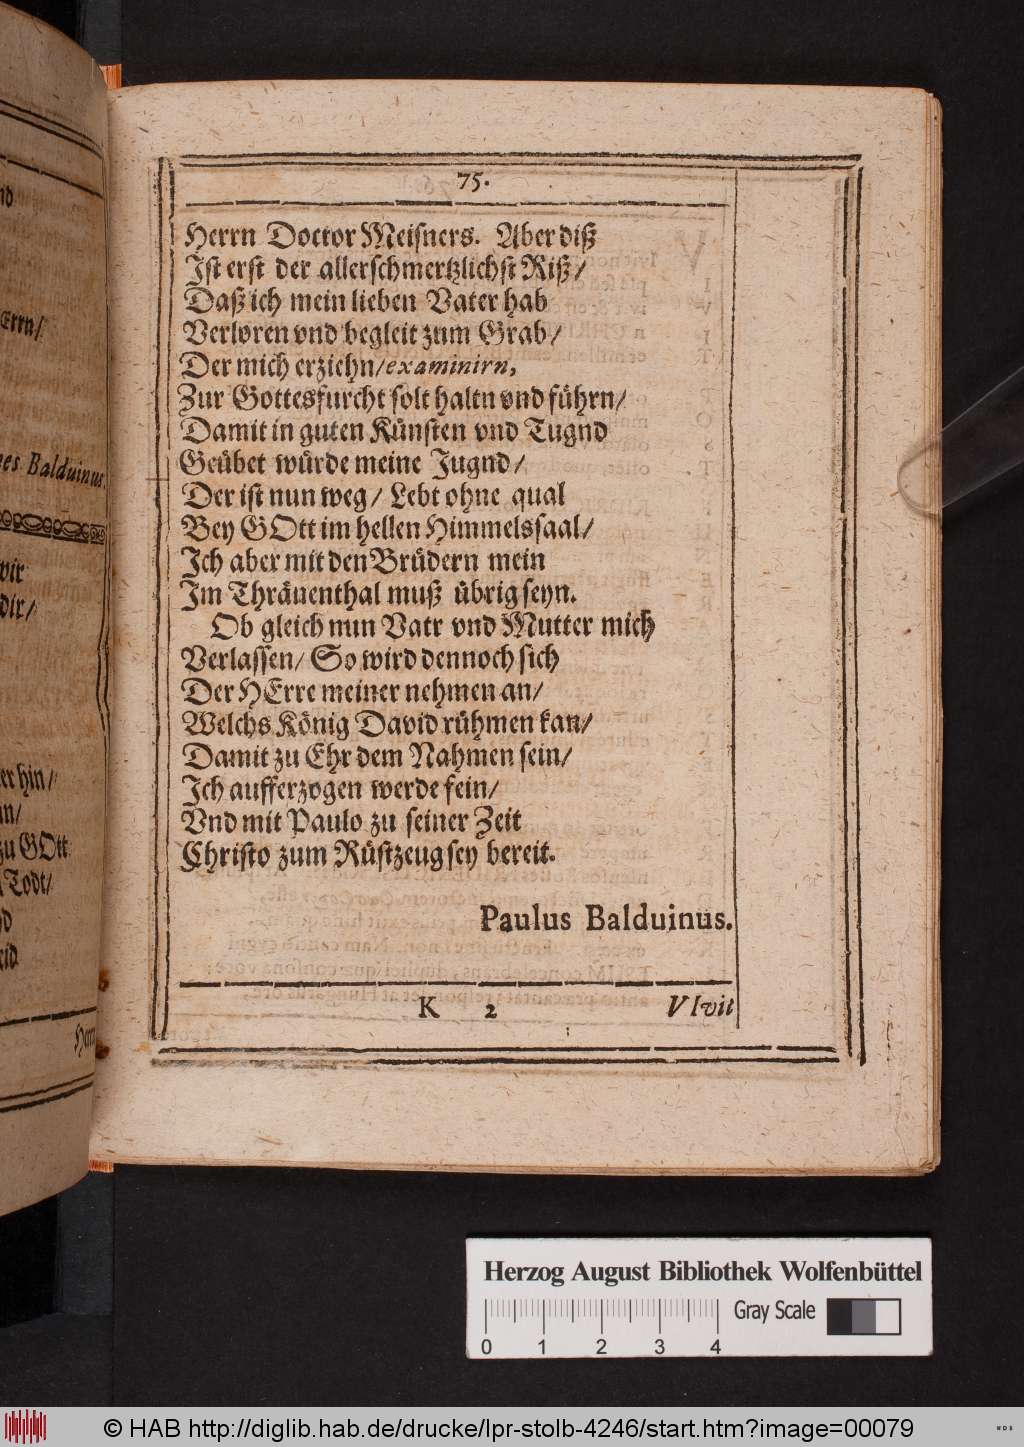 nd
Errn/
nes Balduinus.
wir
dir/
er hin/
nn/
zu GOtt
Todt/
Herrn
75.
Herrn Doctor Meisners. Aber diß
Ist erst der allerschmertzlichst Riß/
Daß ich mein lieben Vater hab
Verloren vnd begleit zum Grab/
Der mich erziehn/ examinirn,
Zur Gottesfurcht solt haltn vnd führn/
Damit in guten Künsten vnd Tugnd
Geübet würde meine Jugnd/
Der ist nun weg/ Lebt ohne qual
Bey GOtt im hellen Himmelssaal/
Ich aber mit den Brüdern mein
Im Thränenthal muß übrig seyn.
Ob gleich nun Vatr vnd Mutter mich
Verlassen/ So wird dennoch sich
Der HErre meiner nehmen an/
Welchs König David rühmen kan/
Damit zu Ehr dem Nahmen sein/
Ich aufferzogen werde fein/
Vnd mit Paulo zu seiner Zeit
Christo zum Rüstzeug sey bereit.
Paulus Balduinus.
K 2 VIvit
Herzog August Bibliothek Wolfenbüttel
Gray Scale
0 1 2 3 4
© HAB http://diglib.hab.de/drucke/lpr-stolb-4246/start.htm?image=00079